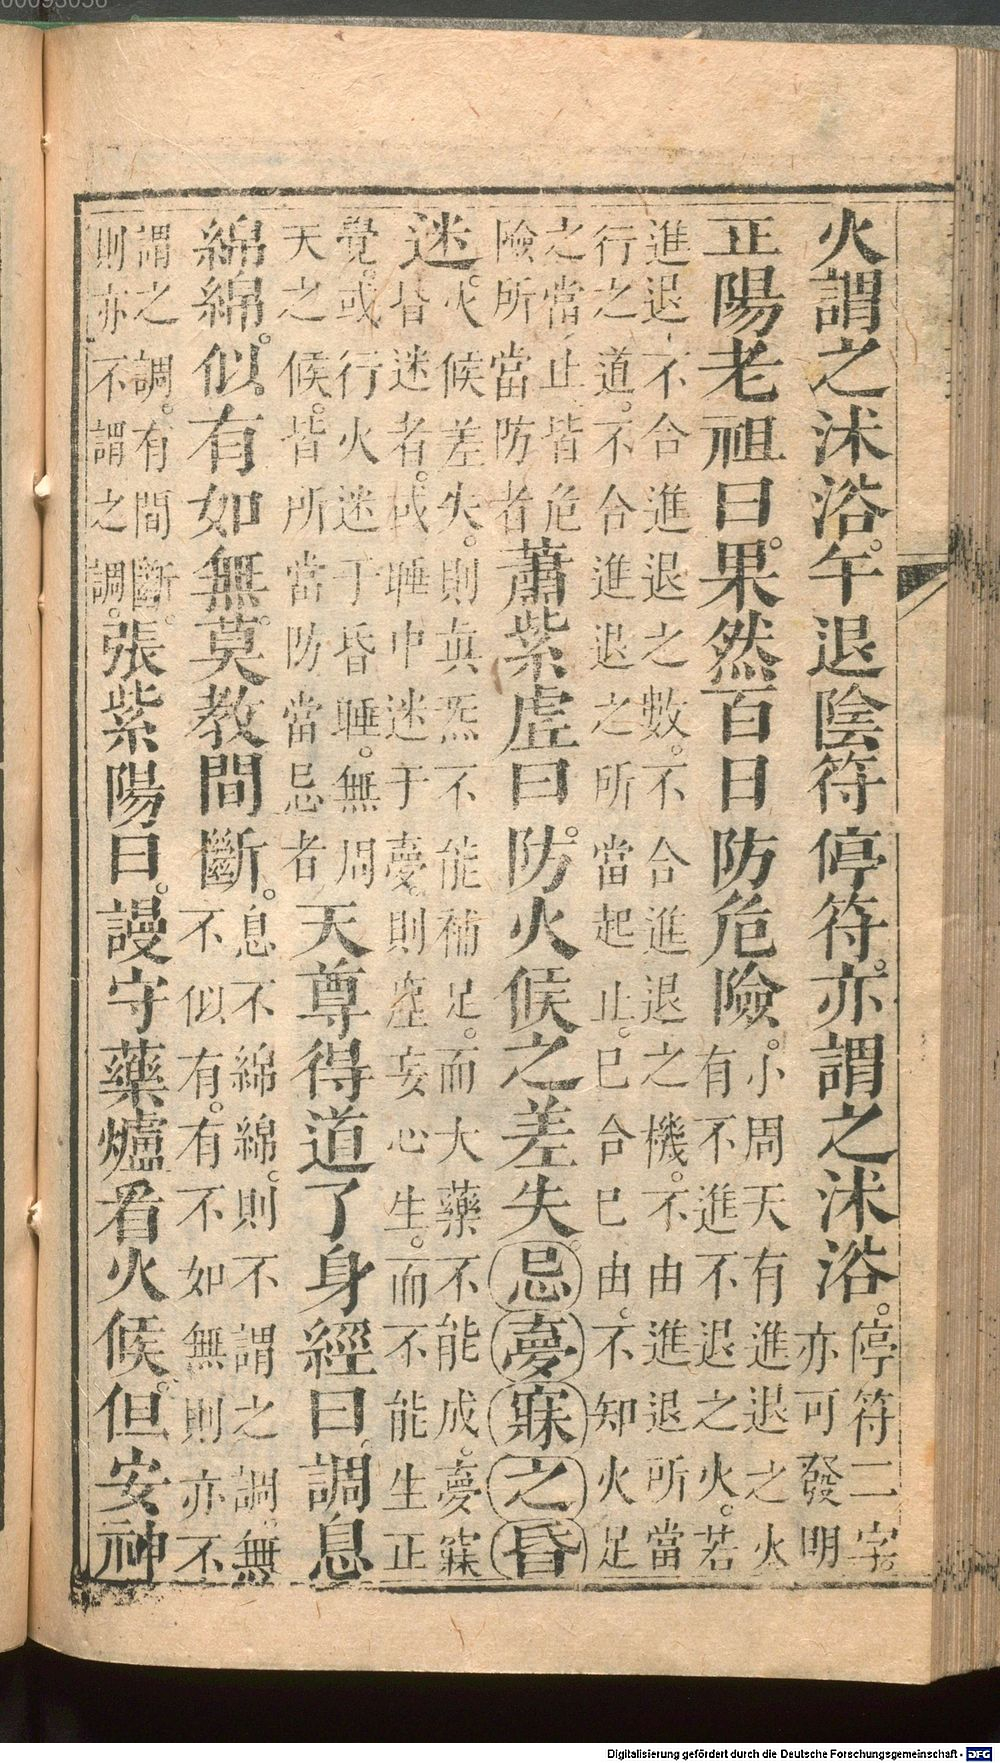 火謂之沐浴。午退陰符停符。亦謂之沐浴。停符二字。
亦可發明
正陽老祖曰。果然百日防危險。小周天有進退之火
有不進不退之火。若
進退不合進退之數。不合進退之機。不由進退所當
行之道。不合進退之所當起止。已合已由。不知火足
之當止。皆危
險所當防者
蕭紫虛曰。防火候之差失。忌夢寐之昏
迷。火候差失。則真炁不能補足。而大藥不能成。夢寐
昏迷者。或睡中迷于夢。則塵妄心生。而不能生正
覺。或行火迷于昏睡。無周
天之候。皆所當防當忌者
天尊得道了身經曰。調息
綿綿。似有如無。莫教間斷。息不綿綿。則不謂之調。無
不似有。有不如無則亦不
謂之調。有間斷。
則亦不謂之調。
張紫陽曰。謾守藥爐看火候。但安神
00093056
Digitalisierung gefördert durch die Deutsche Forschungsgemeinschaft - DFG